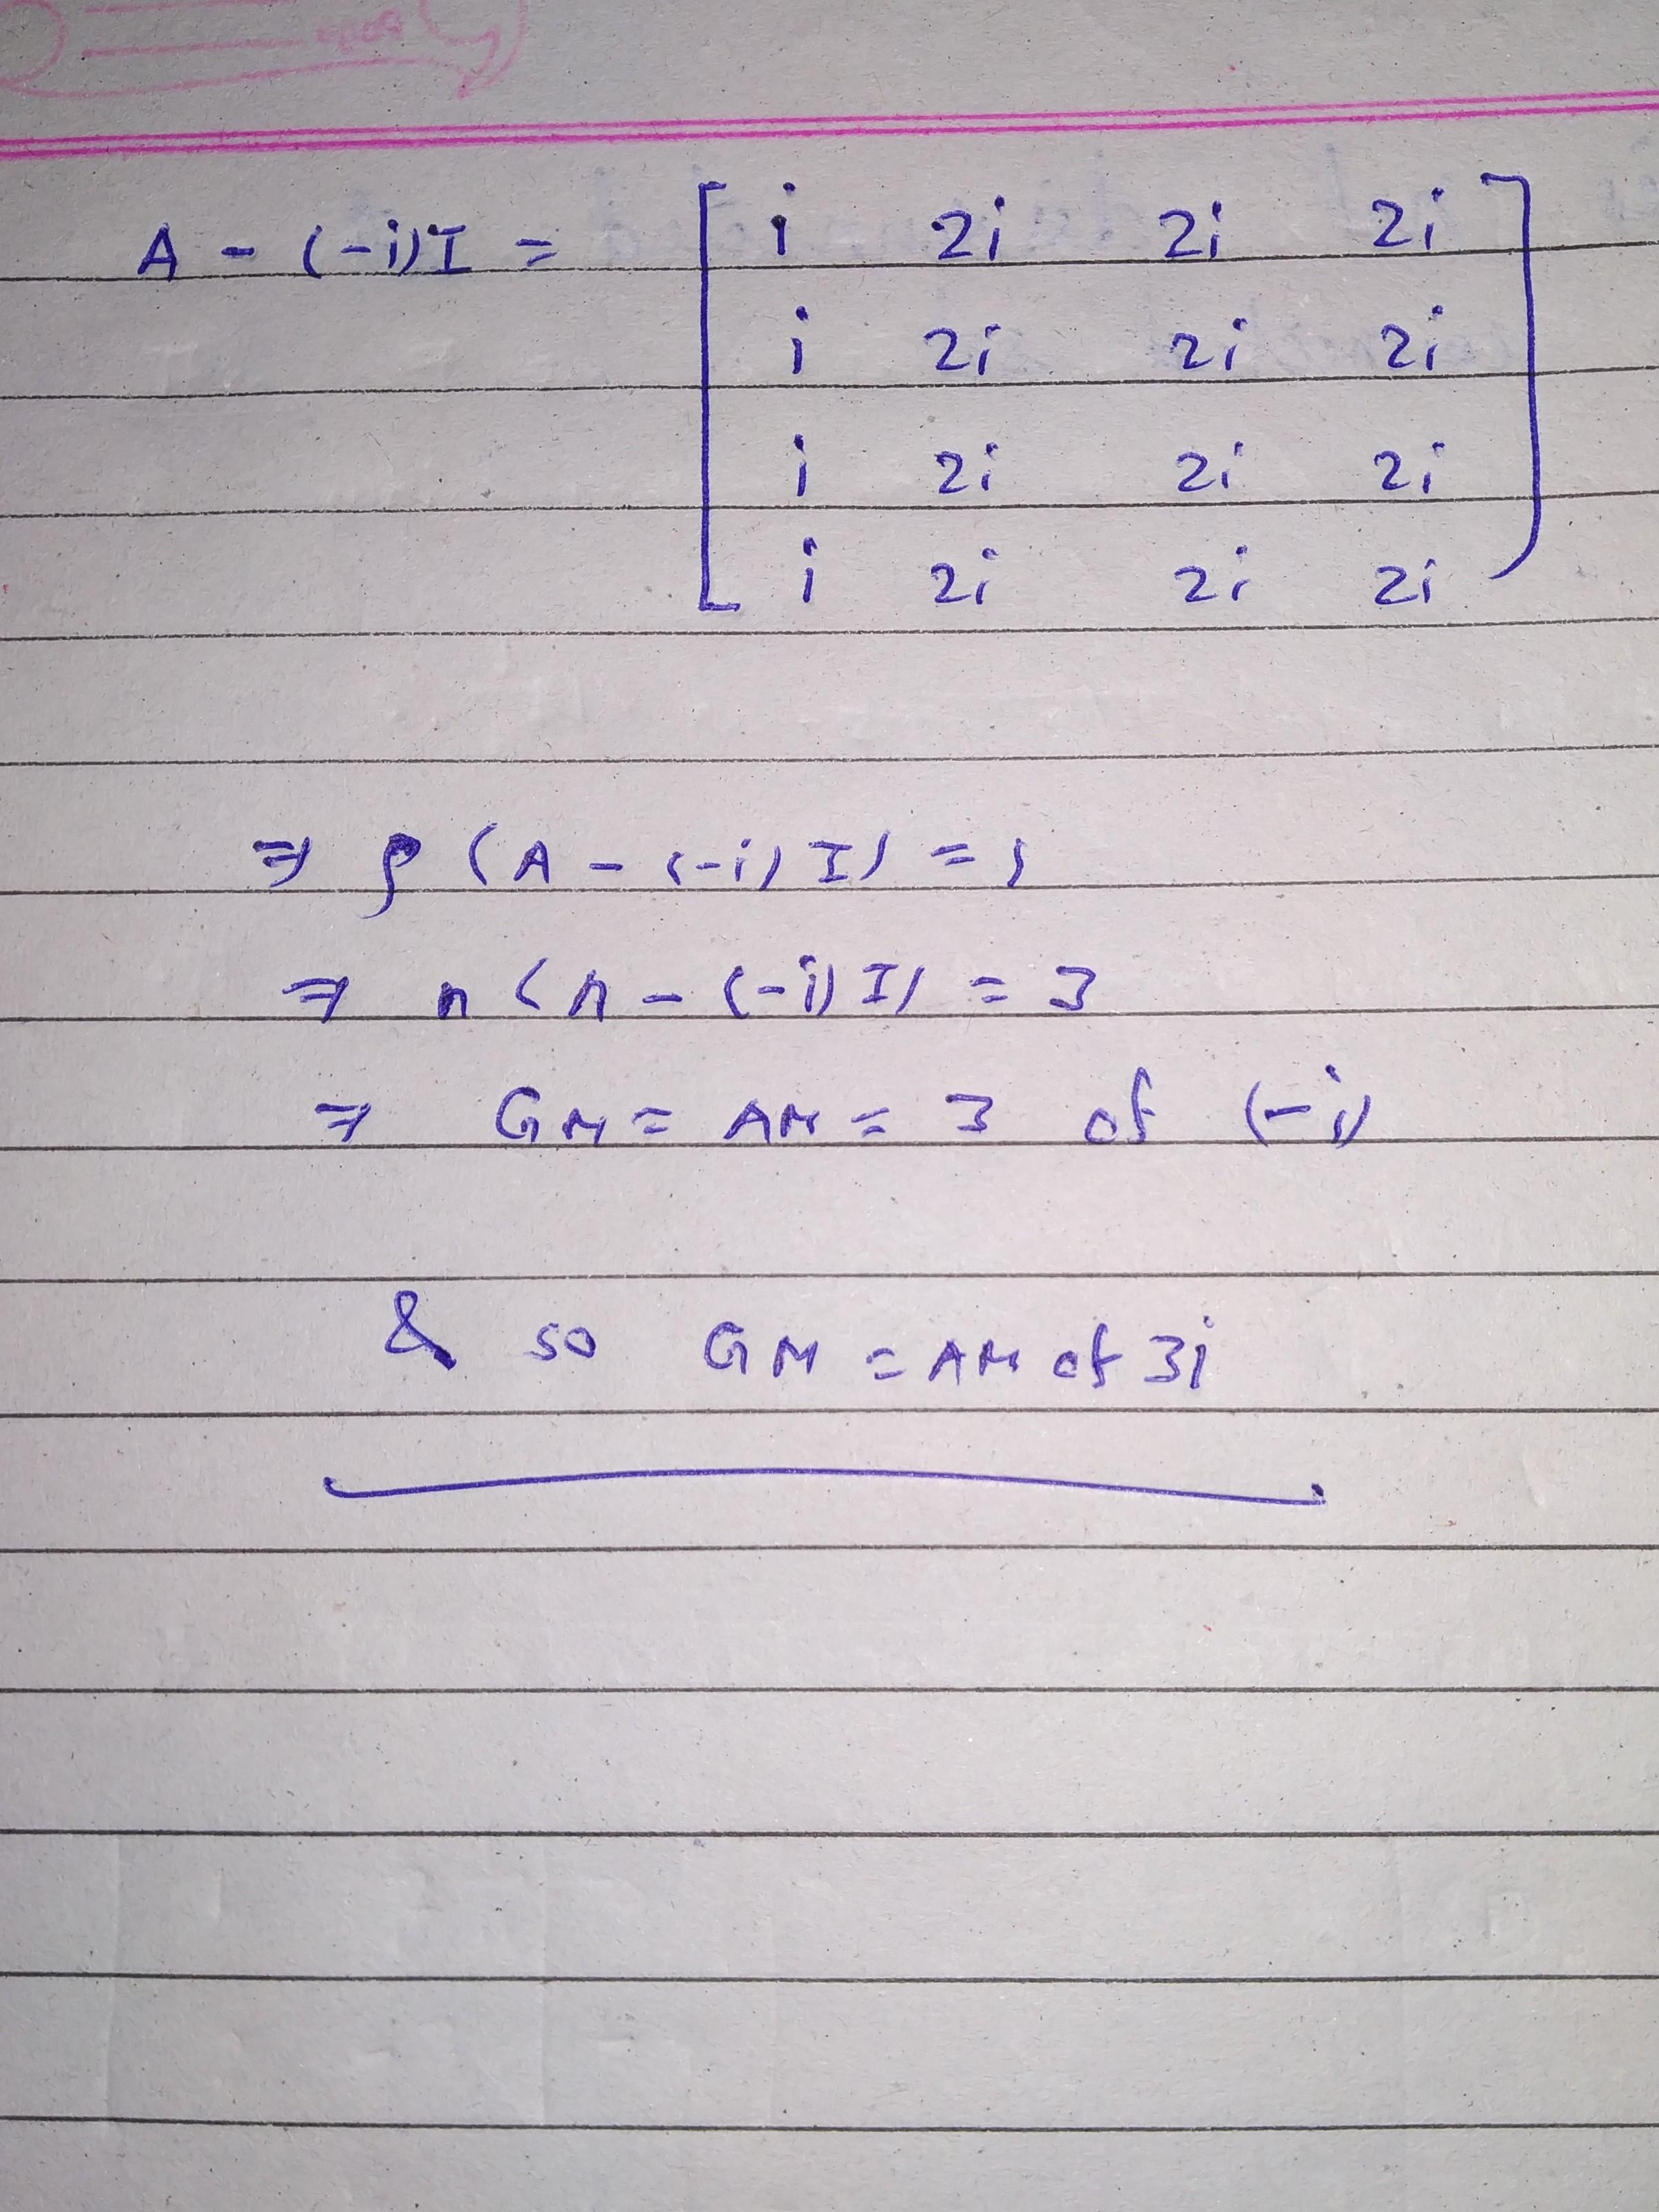 A - (-i)I = [ i 2i 2i 2i
i 2i 2i 2i
i 2i 2i 2i
i 2i 2i 2i ]
⇒ ρ (A - (-i) I) = 1
⇒ n (A - (-i) I) = 3
⇒ GM = AM = 3 of (-i)
& so GM = AM of 3i